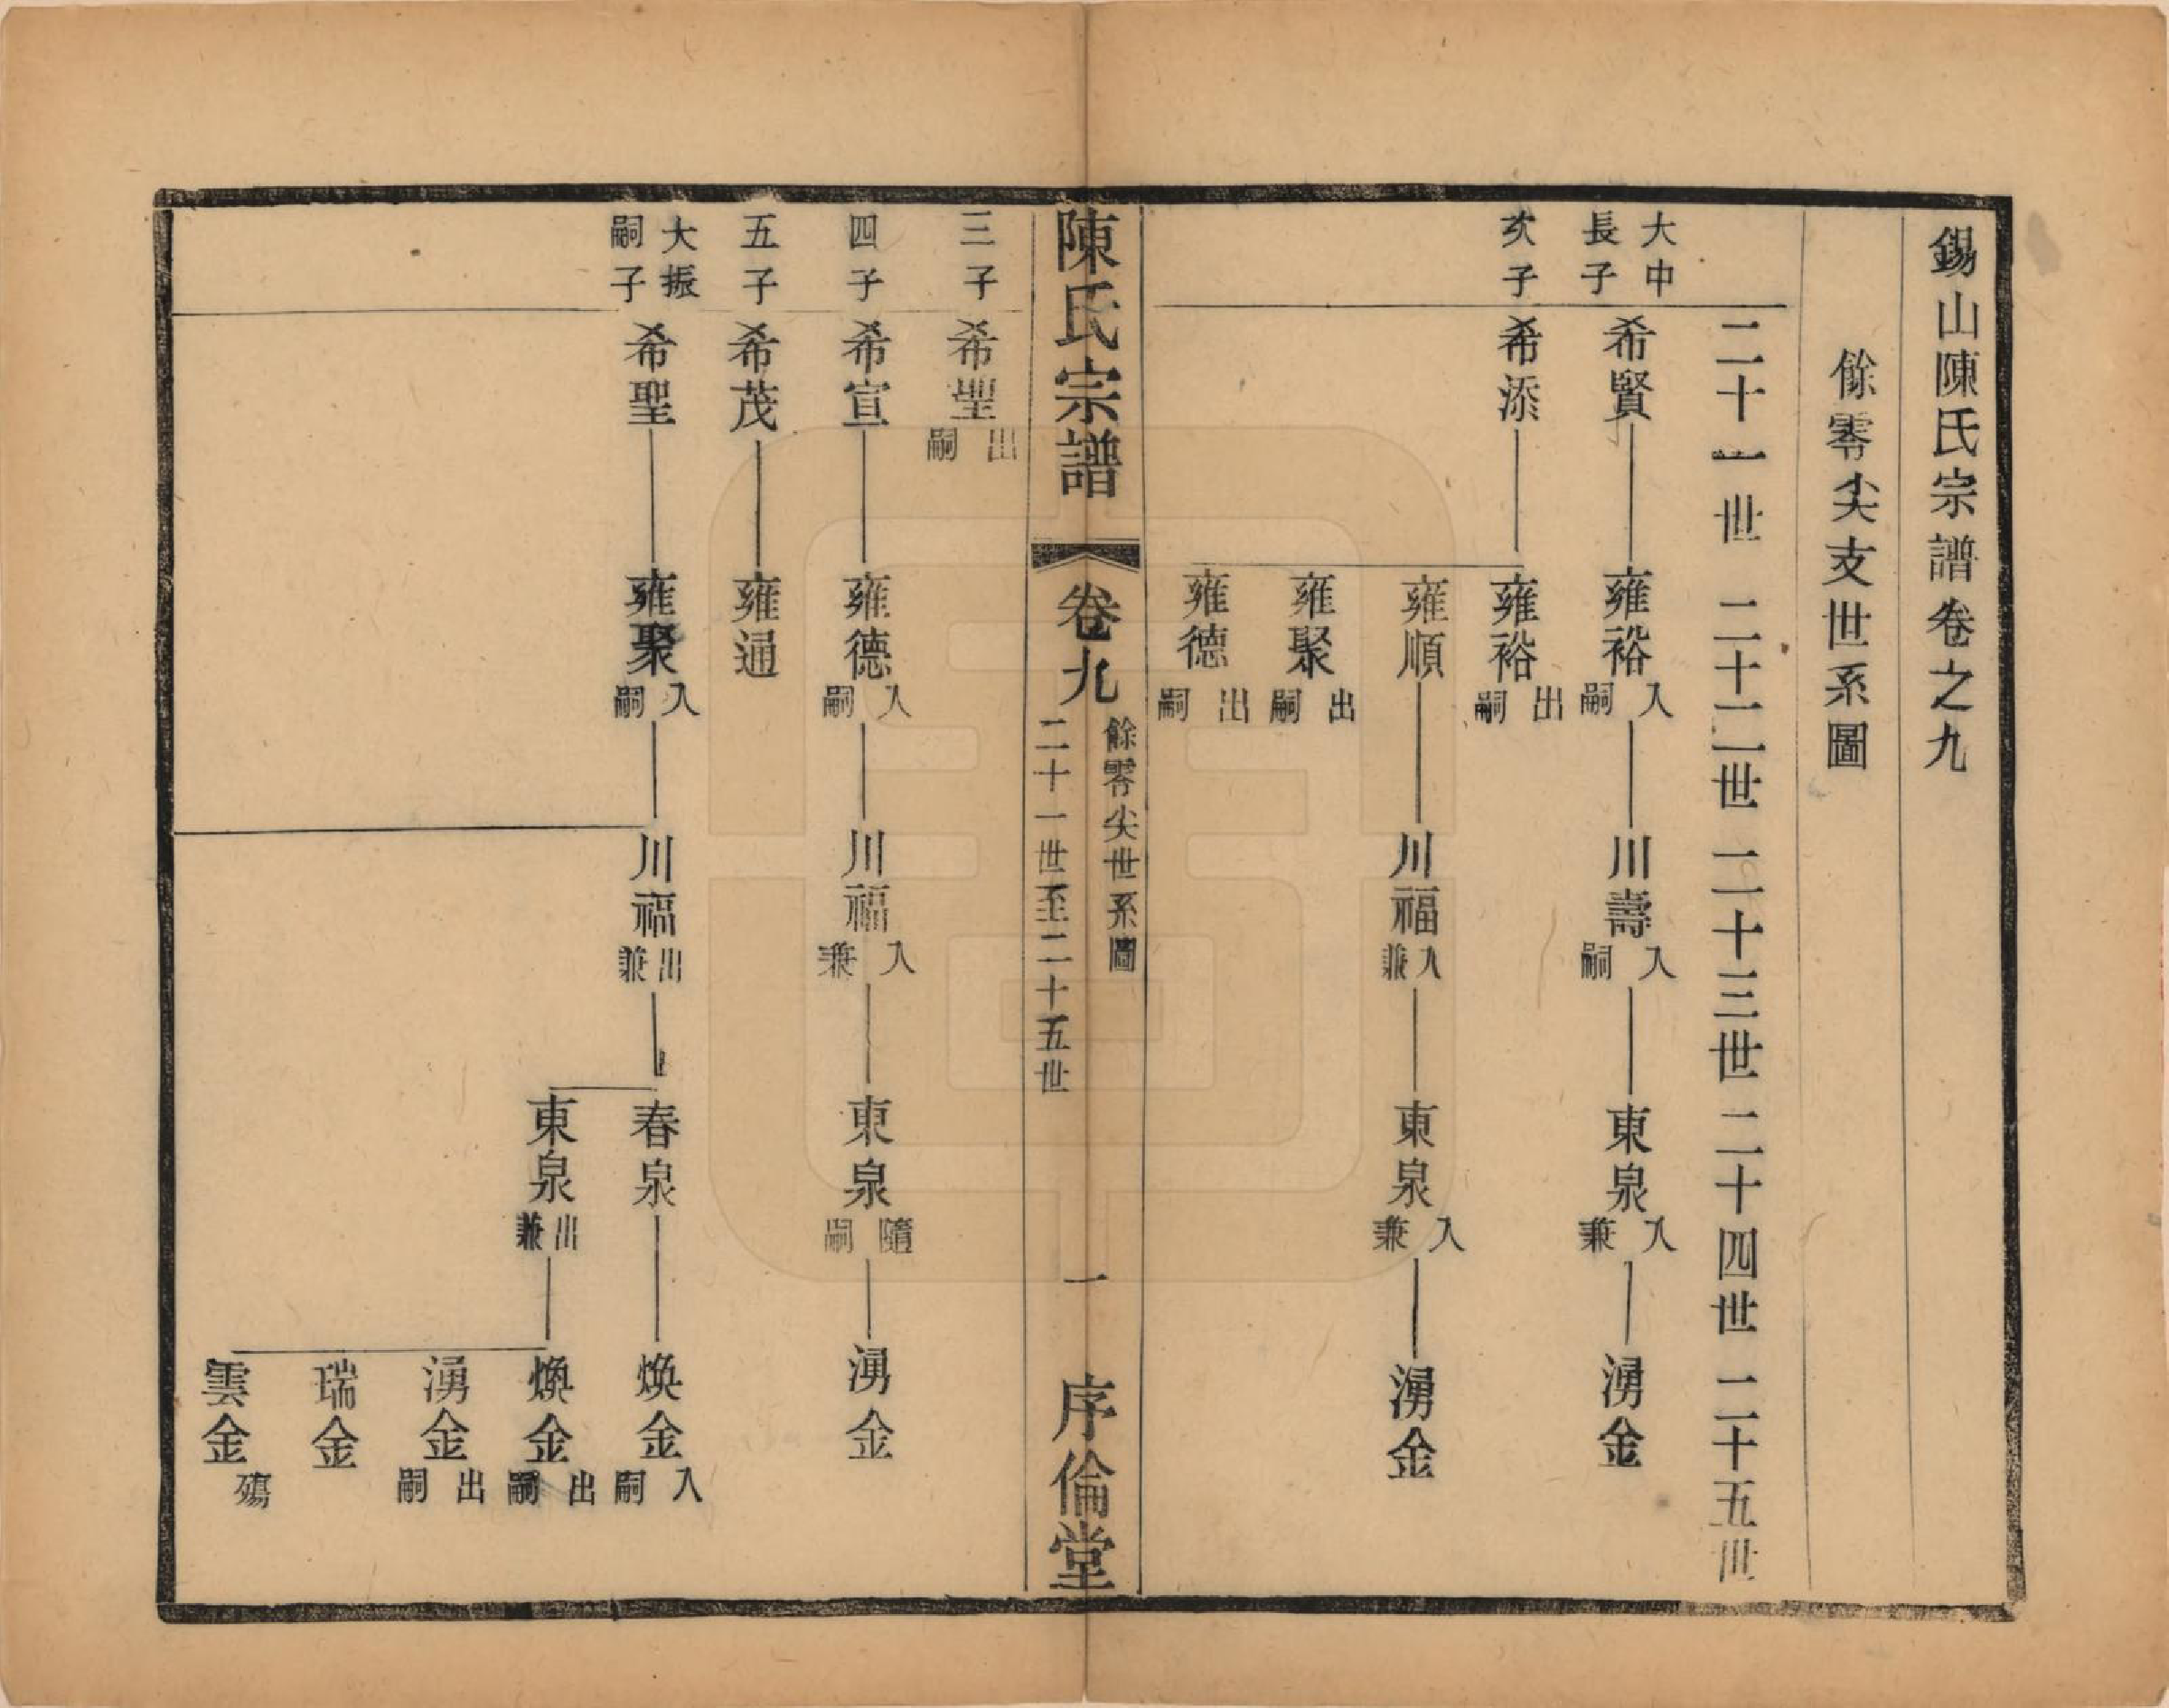 錫山陳氏宗譜卷之九
餘零尖支世系圖
二十一世 二十二世 二十三世 二十四世 二十五世
大中
長子 希賢 雍裕 入嗣 川壽 入嗣 東泉 入兼 湧金
次子 希添 雍裕 出嗣
雍順 川福 入兼 東泉 入兼 湧金
雍聚 出嗣
雍德 出嗣
陳氏宗譜 卷九 餘零尖世系圖 二十一世至二十五世 一 序倫堂
三子 希聖 出嗣
四子 希宣 雍德 入嗣 川福 入兼 東泉 隨嗣 湧金
五子 希茂 雍通
大振
嗣子 希聖 雍聚 入嗣 川福 出兼 春泉 焕金 入嗣
東泉 出兼 煥金 出嗣
湧金 出嗣
瑞金
雲金 殤